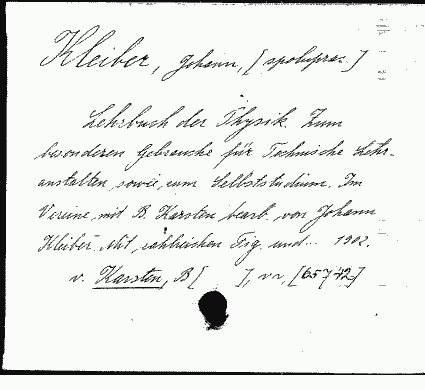 Kleiber, Johann, [spolupras.]
Lehrbuch der Physik. Zum
besonderen Gebrauche für Technische Lehr-
anstalten, sowie, zum Selbststudium. Im
Vereine mit B. Karsten bearb. von Johann
Kleiber. Mit, zahlreichen Fig. und... 1902.
v. Karsten, B [ ], vv, [65742]